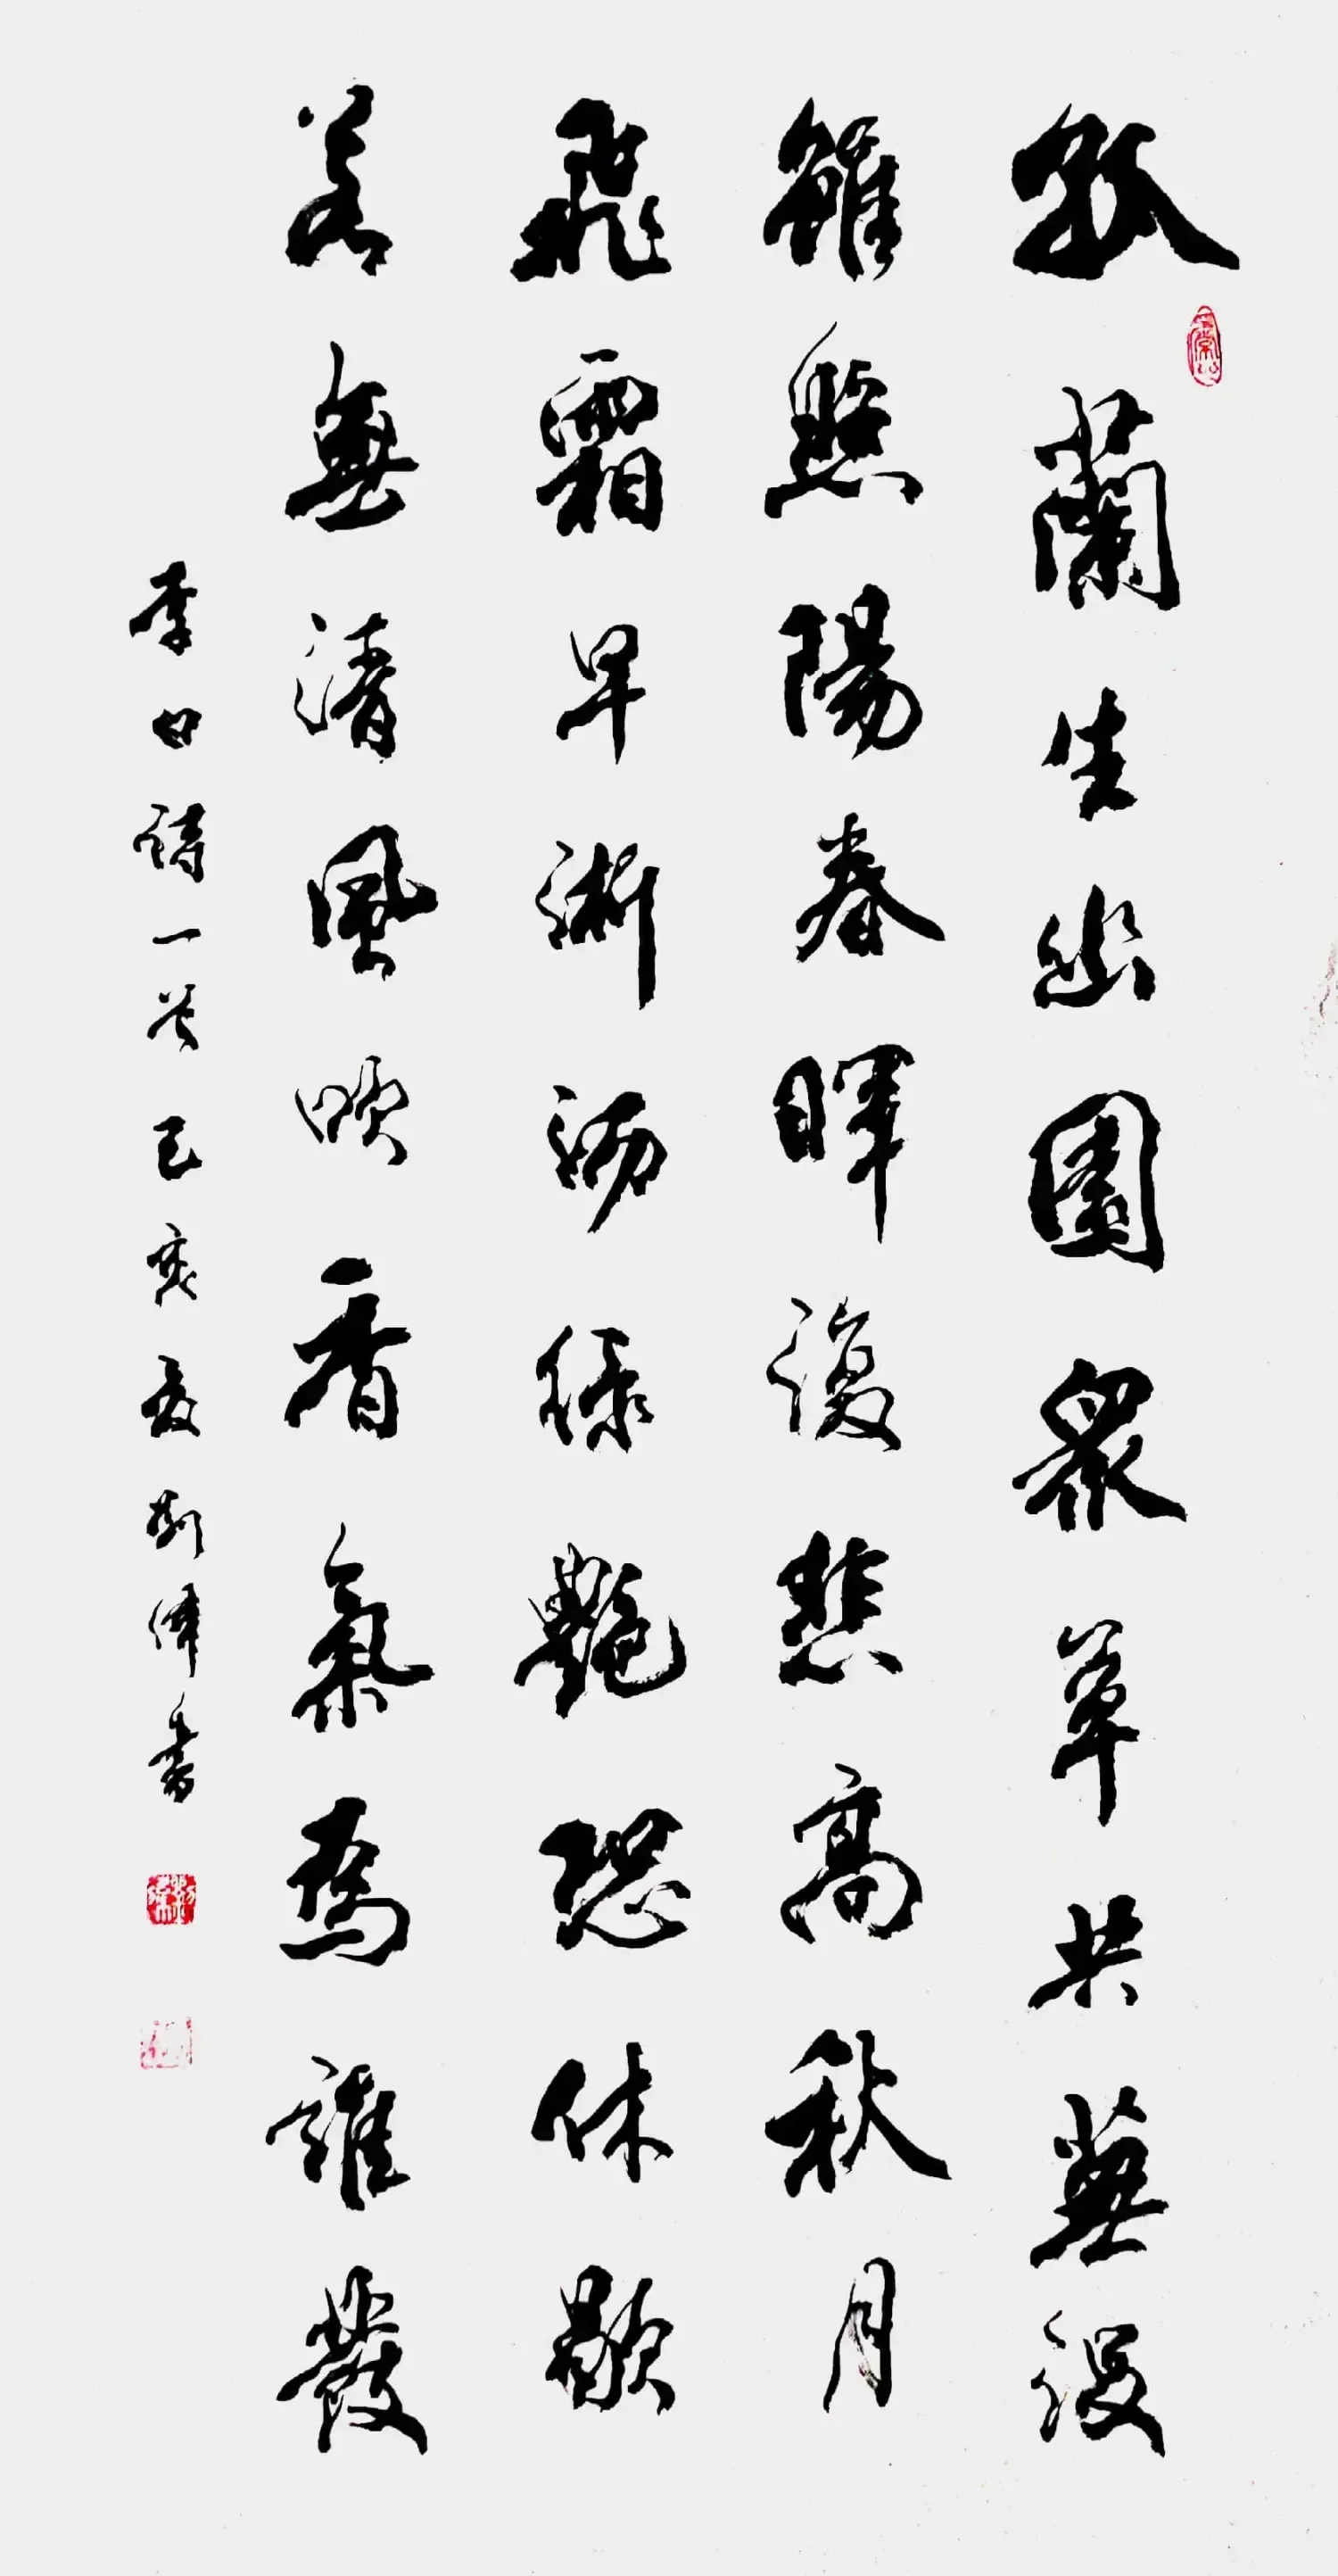 孤蘭生幽園眾草共蕪沒
雖照陽春暉復悲高秋月
飛霜早淅瀝綠艷恐休歇
若無清風吹香氣為誰發
李白詩一首己亥夏彭偉書